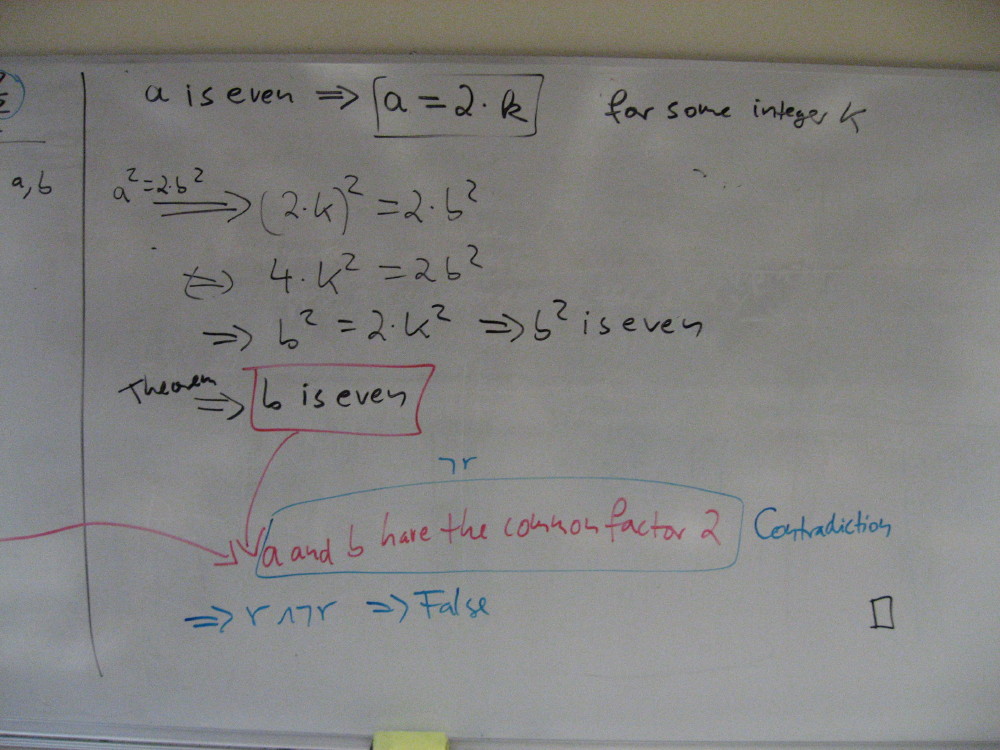 a, b
a is even ⇒ a = 2 · k for some integer k
a² = 2·b²
⇒ (2·k)² = 2·b²
⇔ 4·k² = 2b²
⇒ b² = 2·k² ⇒ b² is even
Theorem
⇒ b is even
¬r
a and b have the common factor 2 Contradiction
⇒ r ∧ ¬r ⇒ False
□